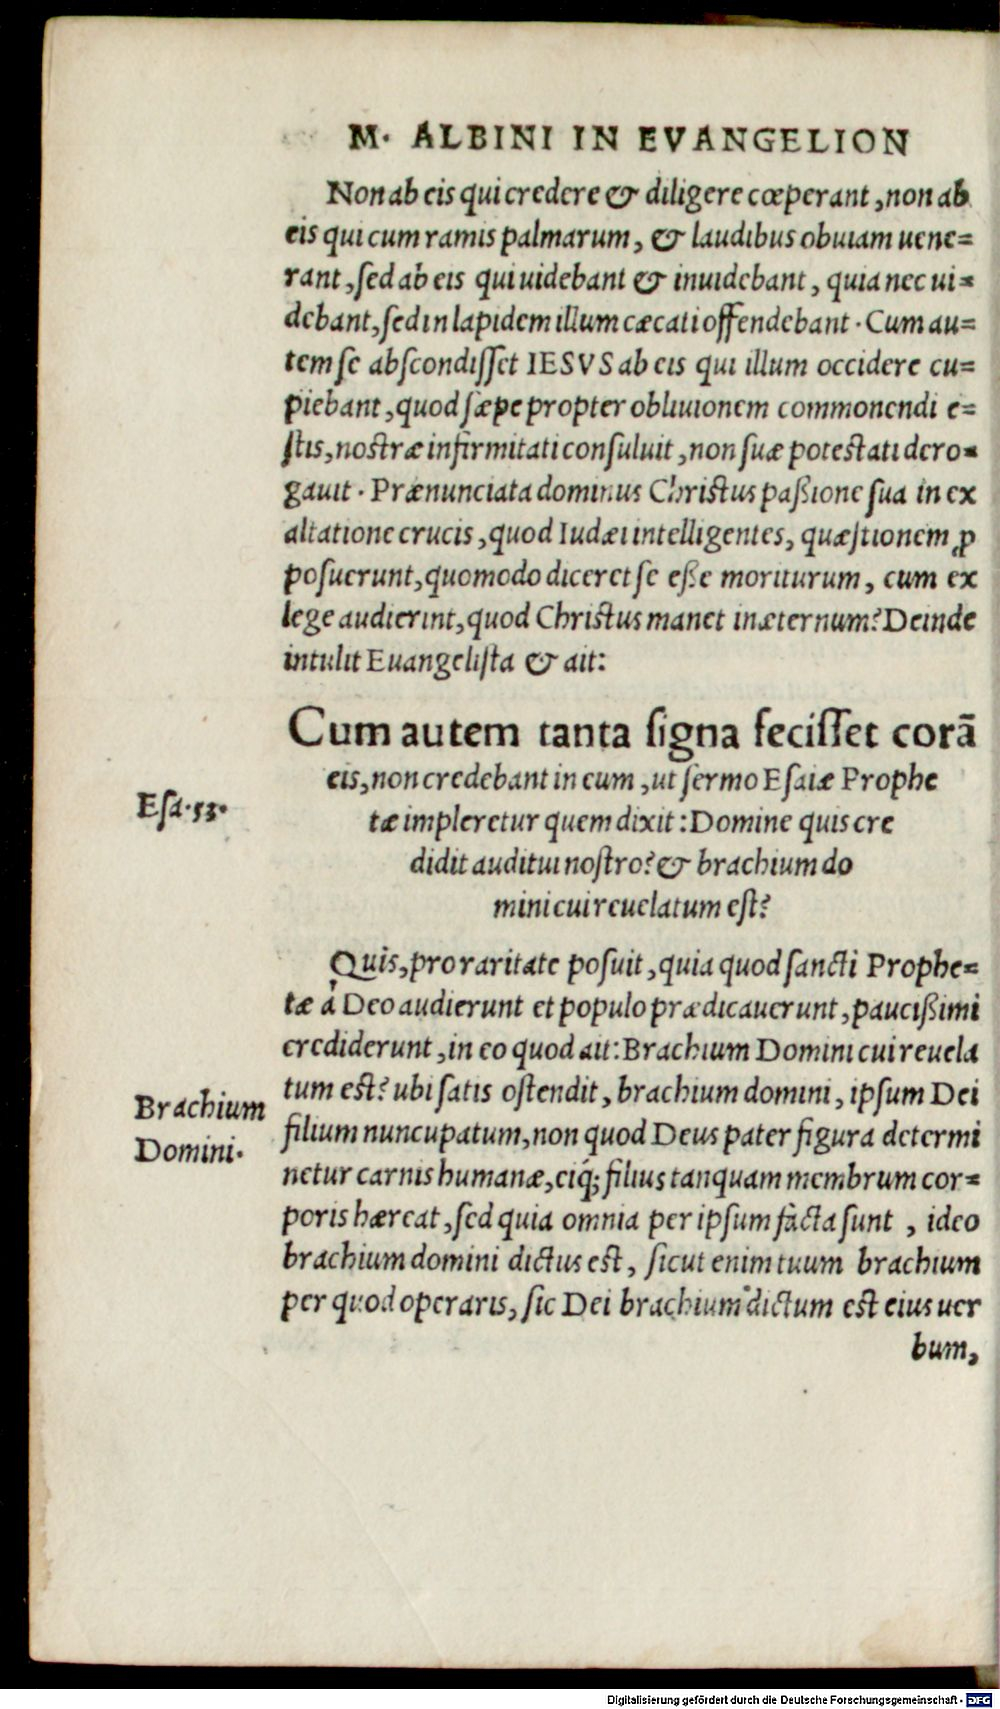 M. ALBINI IN EVANGELION
Non ab eis qui credere & diligere cœperant, non ab
eis qui cum ramis palmarum, & laudibus obuiam uene=
rant, sed ab eis qui uidebant & inuidebant, quia nec ui=
debant, sed in lapidem illum cæcati offendebant. Cum au=
tem se abscondisset IESVS ab eis qui illum occidere cu=
piebant, quod sæpe propter obliuionem commonendi e=
stis, nostræ infirmitati consuluit, non suæ potestati dero=
gauit. Prænunciata dominus Christus paßione sua in ex
altatione crucis, quod Iudæi intelligentes, quæstionem ꝓ
posuerunt, quomodo diceret se eße moriturum, cum ex
lege audierint, quod Christus manet in æternum? Deinde
intulit Euangelista & ait:
Cum autem tanta signa fecisset corā
eis, non credebant in eum, ut sermo Esaiæ Prophe
Esa. 53.
tæ impleretur quem dixit: Domine quis cre
didit auditui nostro? & brachium do
mini cui reuelatum est?
Quis, pro raritate posuit, quia quod sancti Prophe=
tæ à Deo audierunt et populo prædicauerunt, paucißimi
crediderunt, in eo quod ait: Brachium Domini cui reuela
tum est? ubi satis ostendit, brachium domini, ipsum Dei
Brachium
filium nuncupatum, non quod Deus pater figura determi
Domini.
netur carnis humanæ, eiq́; filius tanquam membrum cor=
poris hæreat, sed quia omnia per ipsum facta sunt, ideo
brachium domini dictus est, sicut enim tuum brachium
per quod operaris, sic Dei brachium dictum est eius uer
bum,
Digitalisierung gefördert durch die Deutsche Forschungsgemeinschaft - DFG